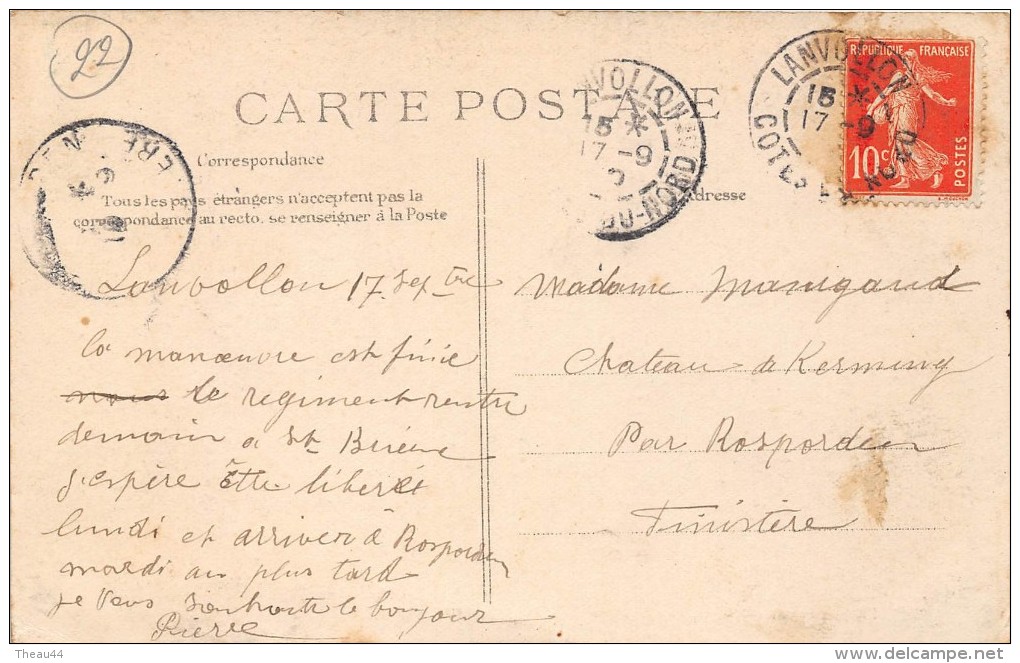 22
CARTE POSTALE
LANVOLLON
15 *
17 -9
DU-NORD
LANVOLLON
15 *
17 -9
COTES DU NORD
REPUBLIQUE FRANÇAISE
10 c
POSTES
Correspondance
Adresse
Tous les pays étrangers n'acceptent pas la
correspondance au recto. se renseigner à la Poste
Lanvollon 17 septbre
la manœuvre est finie
nous le regiment rentre
demain a St Brieuc
j'espère être liberé
lundi et arriver à Rosporden
mardi au plus tard
je vous souhaite le bonjour
Pierre
Madame Manigand
Chateau de Kerminy
Par Rosporden
Finistère
Theau44
delcampe.net